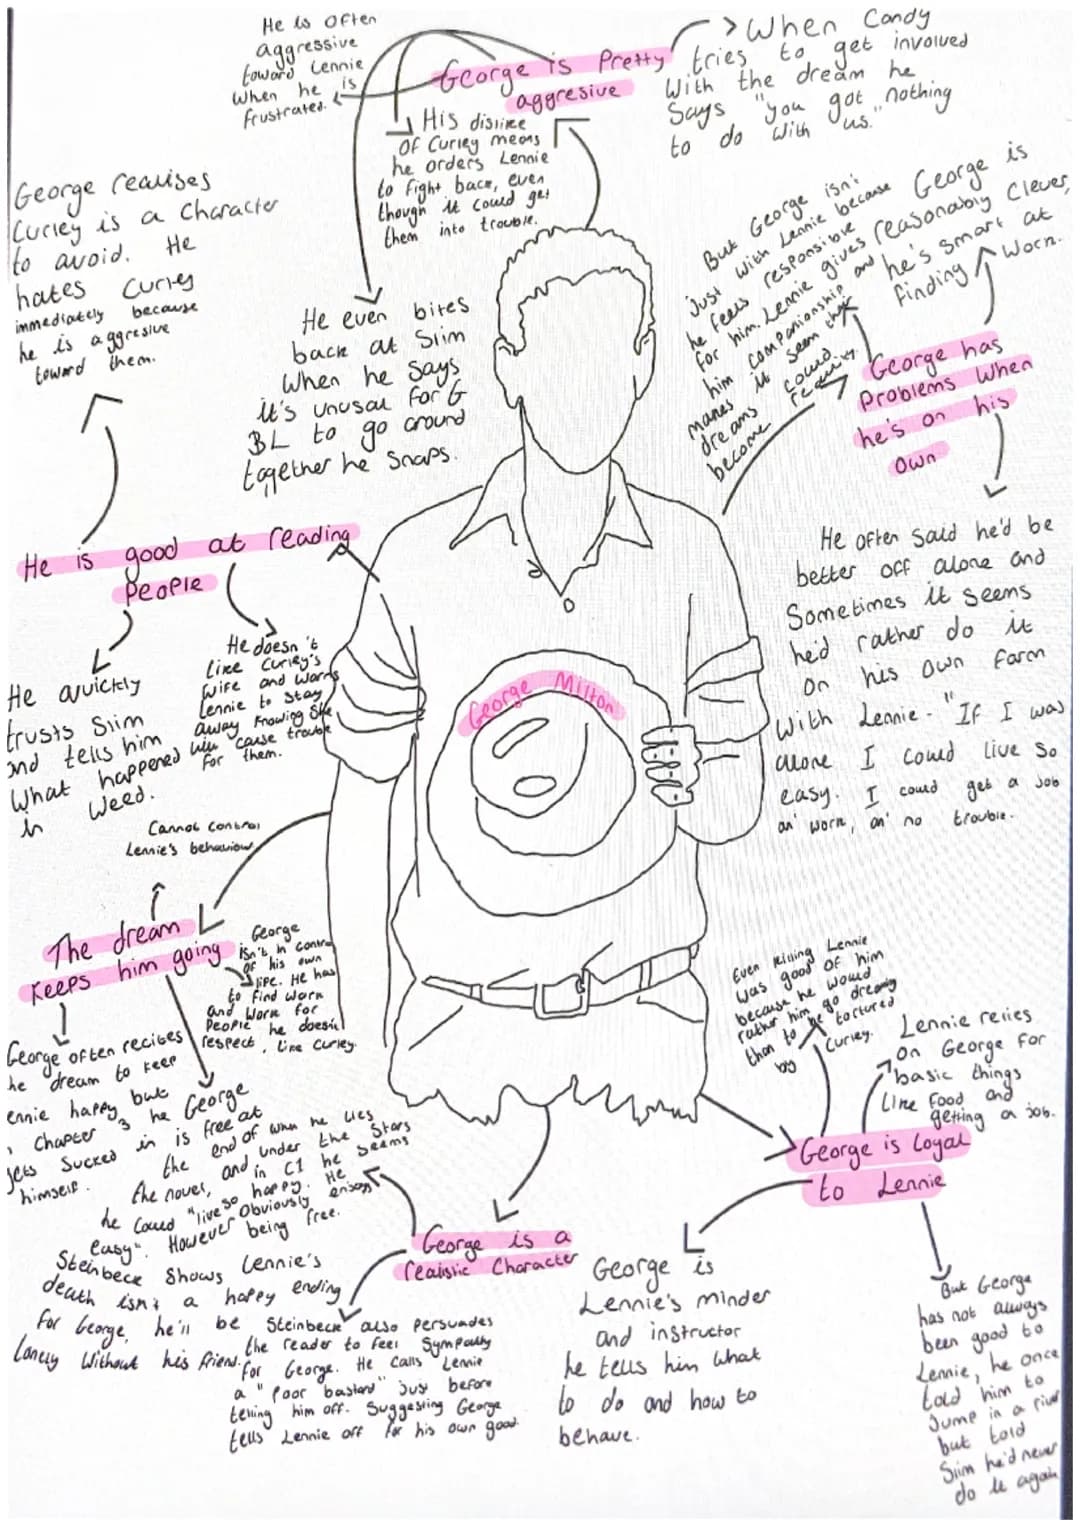 He is often
aggressive
toward Lennie
when he is
frustrated.
George is Pretty
aggresive
When Candy
tries to get involved
With the dream he
Says "you got nothing
to do with us."
His dislike
of Curley means
he orders Lennie
to fight back, even
though it could get
them into trouble.
George realises
Curley is a Character
to avoid. He
hates Curley
immediately because
he is aggresive
toward them.
He even bites
back at Slim
when he says
it's unusal for G
BL to go around
together he snaps.
But George isn't
Just with Lennie because
he feels responsible
for him. Lennie gives
him companionship and
makes it seem their
dreams could
become reality
George is
reasonably clever,
he's smart at
finding work.
George has
Problems when
he's on his
own
He is good at reading
People
He often said he'd be
better off alone and
Sometimes it seems
he'd rather do it
on his own farm
with Lennie - "If I was
alone I could live so
easy. I could get a job
an' work, an' no trouble.
He quickly
trusts Slim
and tells him
what happened
in Weed.
He doesn't
like Curley's
wife and warns
Lennie to stay
away knowing she
will cause trouble
for them.
George Milton
Cannot control
Lennie's behaviour
The dream
keeps him going
George
isn't in control
of his own
life. He has
to find work
and work for
People he doesn't
respect, like Curley.
George often recites
he dream to keep
ennie happy but
Chapter 3 he
gets sucked in
himself.
George
is free at
the end of
the novel, and
he could "live so
easy". However
Steinbeck shows Lennie's
death isn't a happy ending
for George, he'll be
lonely without his friend.
in C1 when he lies
under the stars
he seems
happy. He
obviously enjoys
being free.
George is a
realistic Character
Steinbeck also persuades
the reader to feel sympathy
for George. He calls Lennie
a "poor bastard" just before
telling him off. Suggesting George
tells Lennie off for his own good.
Even killing Lennie
was good of him
because he would
rather him go dreamy
than to be tortured
by Curley.
Lennie relies
on George for
basic things
like food and
getting a job.
George is Loyal
to Lennie
George is
Lennie's minder
and instructor
he tells him what
to do and how to
behave.
But George
has not always
been good to
Lennie, he once
told him to
Jump in a river
but told
Slim he'd never
do it again